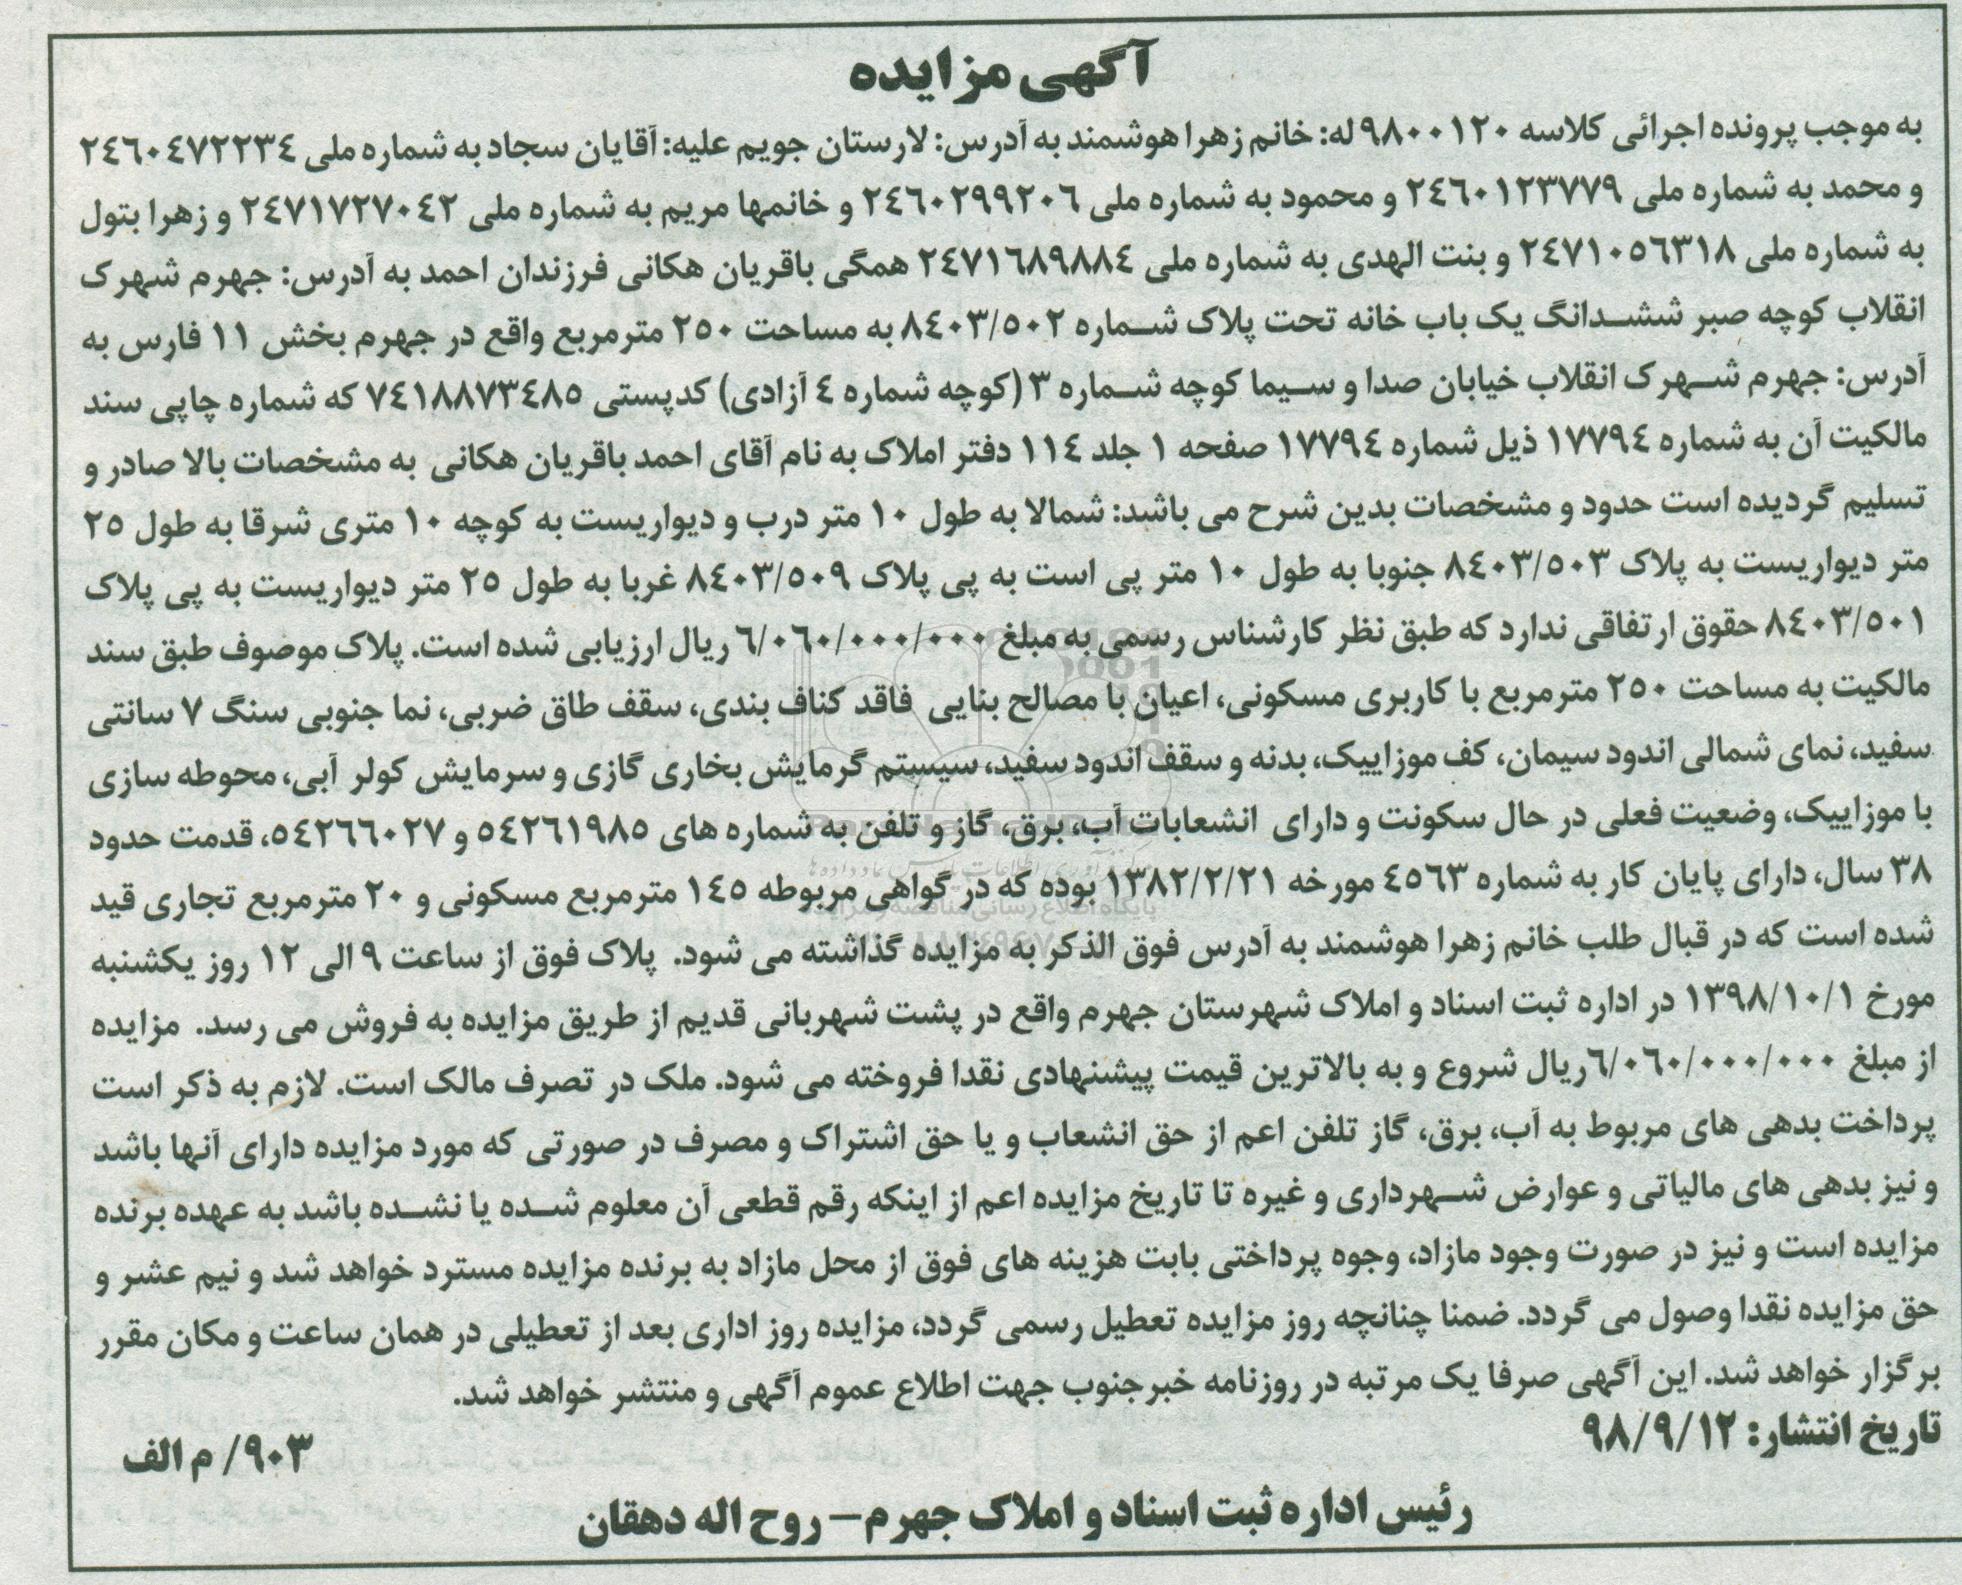 آگهی مزایده
به موجب پرونده اجرائی کلاسه ۹۸۰۰۱۲۰ له: خانم زهرا هوشمند به آدرس: لارستان جویم علیه: آقایان سجاد به شماره ملی ۲٤٦۰٤۷۲۲۳٤
و محمد به شماره ملی ۲٤٦۰۱۲۳۷۷۹ و محمود به شماره ملی ۲٤٦۰۲۹۹۲۰٦ و خانمها مریم به شماره ملی ۲٤۷۱۷۲۷۰٤۲ و زهرا بتول
به شماره ملی ۲٤۷۱۰٥٦۳۱۸ و بنت الهدی به شماره ملی ۲٤۷۱٦۸۹۸۸٤ همگی باقریان هکانی فرزندان احمد به آدرس: جهرم شهرک
انقلاب کوچه صبر ششدانگ یک باب خانه تحت پلاک شماره ۸٤۰۳/٥۰۲ به مساحت ۲٥۰ مترمربع واقع در جهرم بخش ۱۱ فارس به
آدرس: جهرم شهرک انقلاب خیابان صدا و سیما کوچه شماره ۳ (کوچه شماره ٤ آزادی) کدپستی ۷٤۱۸۸۷۳٤۸٥ که شماره چاپی سند
مالکیت آن به شماره ۱۷۷۹٤ ذیل شماره ۱۷۷۹٤ صفحه ۱ جلد ۱۱٤ دفتر املاک به نام آقای احمد باقریان هکانی به مشخصات بالا صادر و
تسلیم گردیده است حدود و مشخصات بدین شرح می باشد: شمالا به طول ۱۰ متر درب و دیواریست به کوچه ۱۰ متری شرقا به طول ۲٥
متر دیواریست به پلاک ۸٤۰۳/٥۰۳ جنوبا به طول ۱۰ متر پی است به پی پلاک ۸٤۰۳/٥۰۹ غربا به طول ۲٥ متر دیواریست به پی پلاک
۸٤۰۳/٥۰۱ حقوق ارتفاقی ندارد که طبق نظر کارشناس رسمی به مبلغ ٦/۰٦۰/۰۰۰/۰۰۰ ریال ارزیابی شده است. پلاک موصوف طبق سند
مالکیت به مساحت ۲٥۰ مترمربع با کاربری مسکونی، اعیان با مصالح بنایی فاقد کناف بندی، سقف طاق ضربی، نما جنوبی سنگ ۷ سانتی
سفید، نمای شمالی اندود سیمان، کف موزاییک، بدنه و سقف اندود سفید، سیستم گرمایش بخاری گازی و سرمایش کولر آبی، محوطه سازی
با موزاییک، وضعیت فعلی در حال سکونت و دارای انشعابات آب، برق، گاز و تلفن به شماره های ٥٤۲٦۱۹۸٥ و ٥٤۲٦٦۰۲۷، قدمت حدود
۳۸ سال، دارای پایان کار به شماره ٤٥٦۳ مورخه ۱۳۸۲/۲/۲۱ بوده که در گواهی مربوطه ۱٤٥ مترمربع مسکونی و ۲۰ مترمربع تجاری قید
شده است که در قبال طلب خانم زهرا هوشمند به آدرس فوق الذکر به مزایده گذاشته می شود. پلاک فوق از ساعت ۹ الی ۱۲ روز یکشنبه
مورخ ۱۳۹۸/۱۰/۱ در اداره ثبت اسناد و املاک شهرستان جهرم واقع در پشت شهربانی قدیم از طریق مزایده به فروش می رسد. مزایده
از مبلغ ٦/۰٦۰/۰۰۰/۰۰۰ریال شروع و به بالاترین قیمت پیشنهادی نقدا فروخته می شود. ملک در تصرف مالک است. لازم به ذکر است
پرداخت بدهی های مربوط به آب، برق، گاز تلفن اعم از حق انشعاب و یا حق اشتراک و مصرف در صورتی که مورد مزایده دارای آنها باشد
و نیز بدهی های مالیاتی و عوارض شهرداری و غیره تا تاریخ مزایده اعم از اینکه رقم قطعی آن معلوم شده یا نشده باشد به عهده برنده
مزایده است و نیز در صورت وجود مازاد، وجوه پرداختی بابت هزینه های فوق از محل مازاد به برنده مزایده مسترد خواهد شد و نیم عشر و
حق مزایده نقدا وصول می گردد. ضمنا چنانچه روز مزایده تعطیل رسمی گردد، مزایده روز اداری بعد از تعطیلی در همان ساعت و مکان مقرر
برگزار خواهد شد. این آگهی صرفا یک مرتبه در روزنامه خبرجنوب جهت اطلاع عموم آگهی و منتشر خواهد شد.
تاریخ انتشار: ۹۸/۹/۱۲
۹۰۳/ م الف
رئیس اداره ثبت اسناد و املاک جهرم– روح اله دهقان